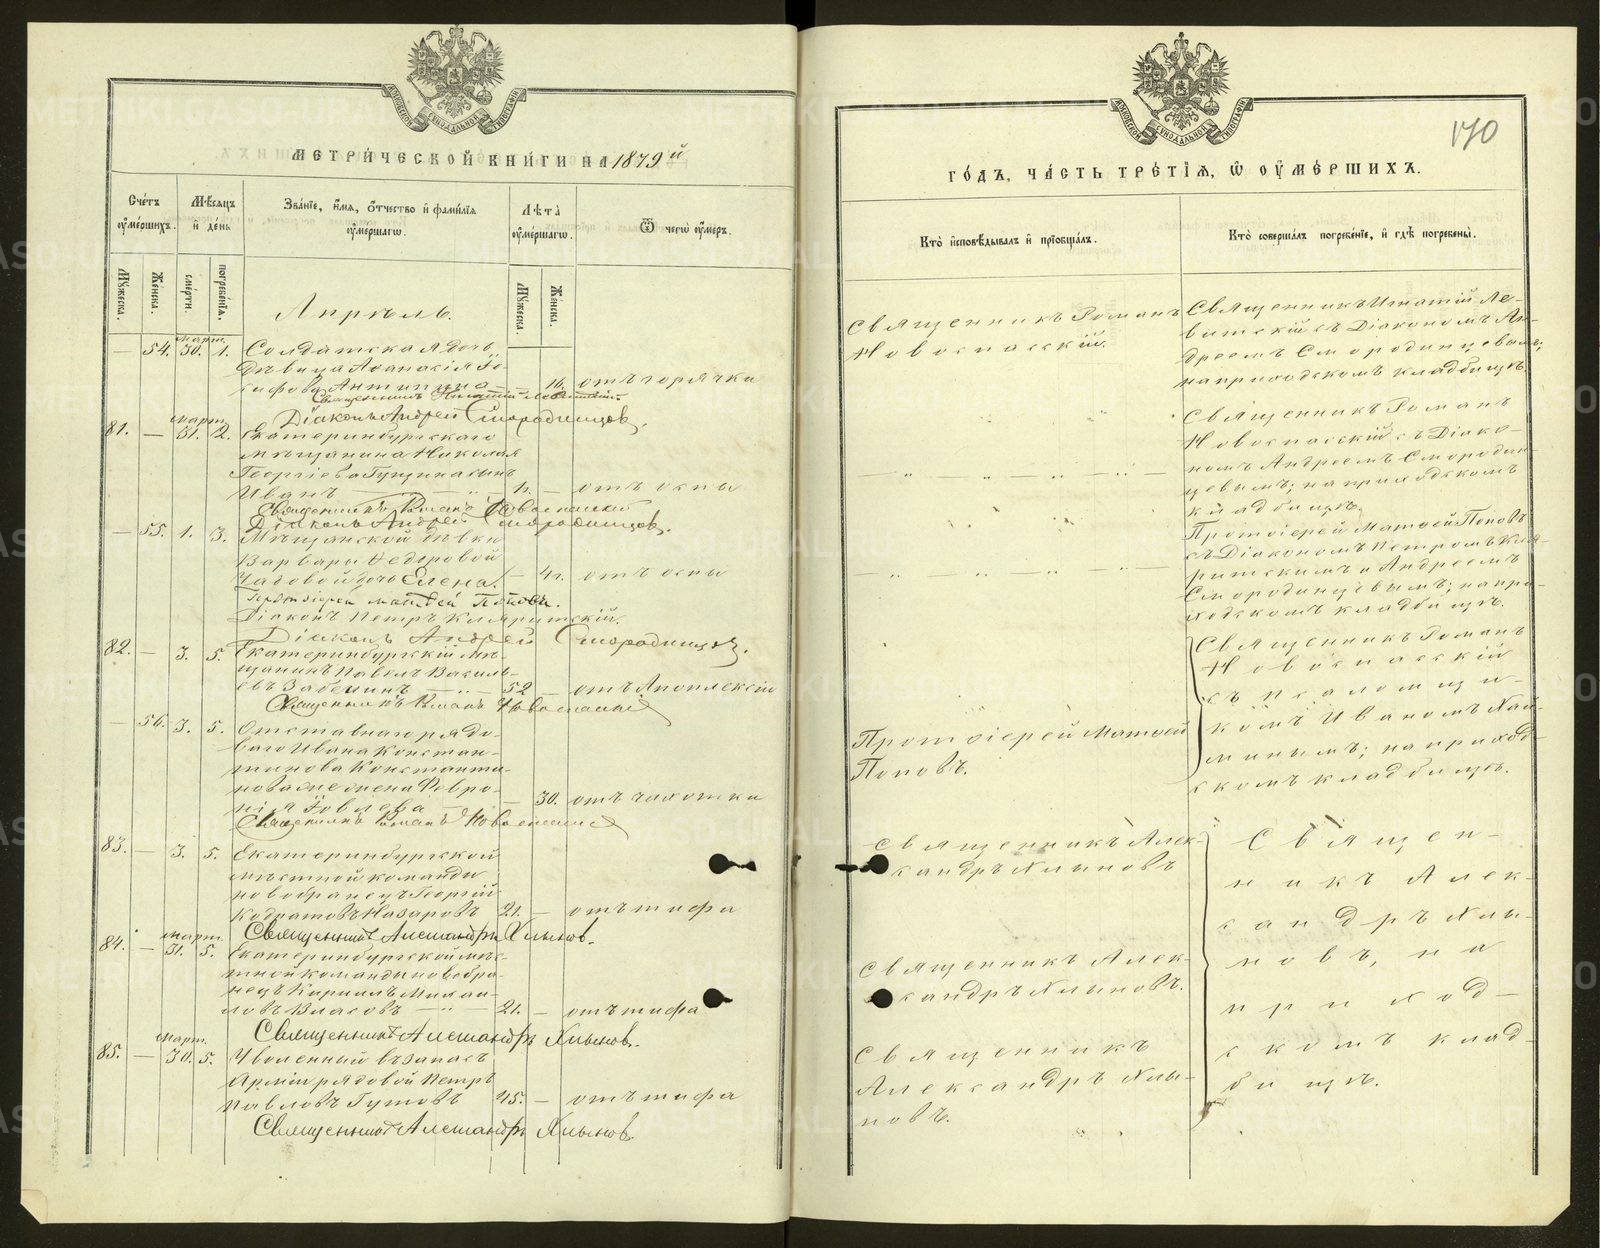 МЕТРИ́ЧЕСКОЙ КНИ́ГИ НА 1879й
Сче́тъ оу҆ме́ршихъ.
Мѣ́сяцъ и҆ де́нь
Зва́нїе, и҆́мя, ѻ҆́тчество и҆ фами́лїя оу҆ме́ршагѡ.
Лѣ́та оу҆ме́ршагѡ.
Ѿ чегѡ̀ оу҆́меръ.
Мꙋ́жеска.
Же́нска.
сме́рти.
погребе́нїѧ.
Мꙋ́жеска
Же́нска.
Апрѣль.
— 54. март. 30. 1. Солдатская дочь
дѣвица Аѳанасія Іо-
сифова Антипина — 16. отъ горячки
Священникъ Игнатій Левитскій.
Діаконъ Андрей Смородинцов.
81. — март. 31. 2. Екатеринбургскаго
мѣщанина Николая
Георгіева Гущина сынъ
Иванъ — 1 г. — отъ оспы
Священникъ Романъ Новоспасскій
Діаконъ Андрей Смородинцов.
— 55. 1. 3. Мѣщанской дѣвки
Варвары Ѳедоровой
Чадовой дочь Елена. — 4 г. отъ оспы
Протоіерей Матѳей Поповъ.
Діаконъ Петръ Кляритскій.
Діаконъ Андрей Смородинцов.
82. — 3. 5. Екатеринбургскій мѣ-
щанинъ Павелъ Василь-
евъ Забелинъ — 52 — отъ Апоплексіи
Священникъ Романъ Новоспасскій
— 56. 3. 5. Отставнаго рядо-
ваго Ивана Констан-
тинова Константи-
нова жена Февро-
нія Іовлева — 30. отъ чахотки
Священникъ Романъ Новоспасскій
83. — 3. 5. Екатеринбургской
мѣстной команды
новобранецъ Георгій
Кодратовъ Назаровъ 21. — отъ тифа
Священникъ Александръ Хлынов.
84. — март. 31. 5. Екатеринбургской мѣс-
тной команды новобра-
нецъ Кирилъ Михаи-
ловъ Власовъ — 21. — отъ тифа
Священникъ Александръ Хлынов.
85. — март. 30. 5. Уволенный въ запасъ
Арміи рядовой Петръ
Павловъ Гутовъ 45. — отъ тифа
Священникъ Александръ Хлынов.
170
ГО́ДЪ, ЧА́СТЬ ТРЕ́ТЇѦ, Ѡ҆ ОУ҆МЕ́РШИХЪ.
Кто̀ и҆сповѣ́дывалъ и҆ прїобща́лъ.
Кто̀ соверша́лъ погребе́нїе, и҆ гдѣ̀ погребены̀.
Священникъ Романъ
Новоспасскій.
Священникъ Игнатій Ле-
витскій съ Діакономъ Ан-
дреемъ Смородинцевымъ;
на приходскомъ кладбищѣ.
Священникъ Романъ
Новоспасскій съ Діако-
номъ Андреемъ Смородин-
цевымъ; на приходскомъ
кладбищѣ.
Протоіерей Матѳей Поповъ
съ Діакономъ Петромъ Кля-
ритскимъ и Андреемъ
Смородинцевымъ; на при-
ходскомъ кладбищѣ.
Протоіерей Матѳей
Поповъ.
Священникъ Романъ
Новоспасскій
съ псаломщи-
комъ Иваномъ Хай-
минымъ; на приход-
скомъ кладбищѣ.
Священникъ Алек-
сандръ Хлыновъ
Священникъ Алек-
сандръ Хлыновъ.
Священникъ
Александръ Хлы-
новъ.
Священ-
никъ Алек-
сандръ Хлы-
новъ, на
приход-
скомъ клад-
бищѣ.